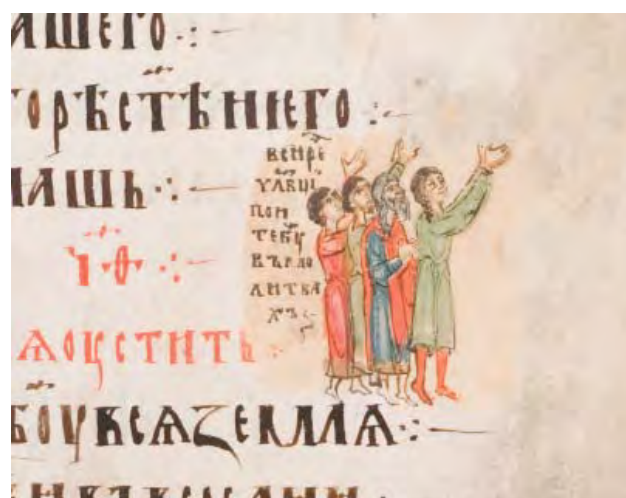 АШЕГО ·:·
ГОРѢСТ҃ѢИѤГО ·:·
НАШЬ ·:·
·Ч҃·Ѳ· ·:·
ѦОЦСТИТЬ ·:·
БО҃УВСѦЗЕМЛѦ ·:·
ВСИРЕ҃
ЧЛ҃ВЦИ
ПОИ
ТЕБУ
ВЪМО
ЛИТВА
ХЪ